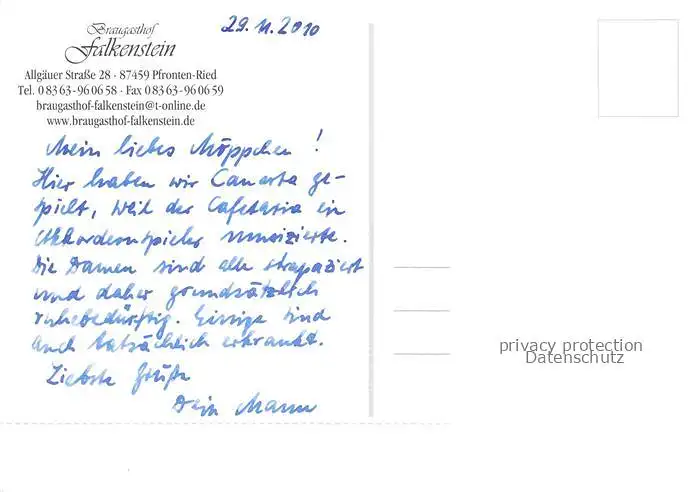 Braugasthof
Falkenstein
Allgäuer Straße 28 · 87459 Pfronten-Ried
Tel. 0 83 63-96 06 58 · Fax 0 83 63-96 06 59
braugasthof-falkenstein@t-online.de
www.braugasthof-falkenstein.de
29.11.2010
Mein liebes Möppchen!
Hier haben wir Canasta ge-
spielt, weil der Cafetaria ein
Akkordeonspieler musizierte.
Die Damen sind alle strapaziert
und daher grundsätzlich
ruhebedürftig. Einige sind
auch tatsächlich erkrankt.
Liebste Grüße
Dein Mann
privacy protection
Datenschutz